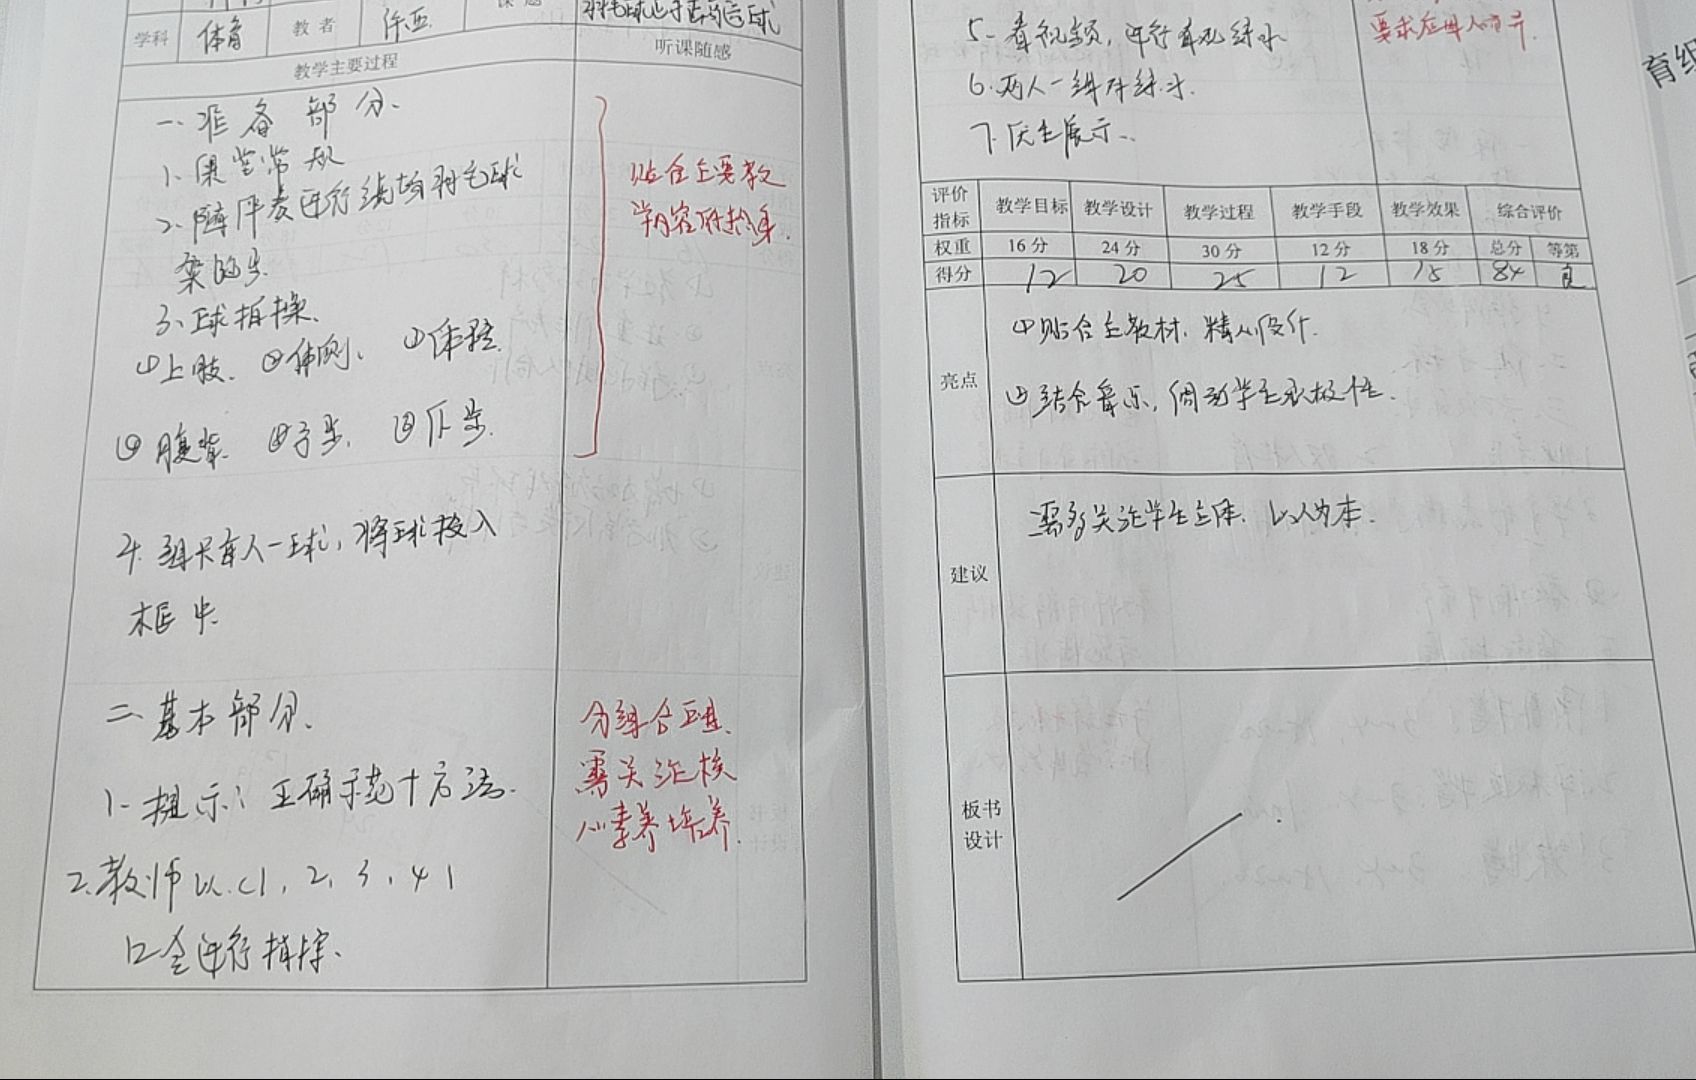 学科 体育 教者 课题
教学主要过程 听课随感
一、准备部分.
1、课堂常规
2、随伴奏进行绕场羽毛球
3、球拍操.
①上肢. ②体侧、 ③体转.
④腹背. ⑤弓步. ⑥仆步.
贴合主要教
学内容
4. 每人一球,将球投入
框中.
二、基本部分.
1、提示:正确示范十方法.
2.教师以 1,2,3,4
口令进行指挥.
分练合理.
需关注核
心素养培养.
5、看视频,进行练习
6.两人一组 练习.
7、展示..
评价指标 教学目标 教学设计 教学过程 教学手段 教学效果 综合评价
权重 16分 24分 30分 12分 18分 总分 等第
得分 12 20 25 12 15 84 良
亮点
①贴合主教材.精心设计.
②结合音乐,调动学生积极性.
建议
需多关注学生主体.以人为本.
板书
设计